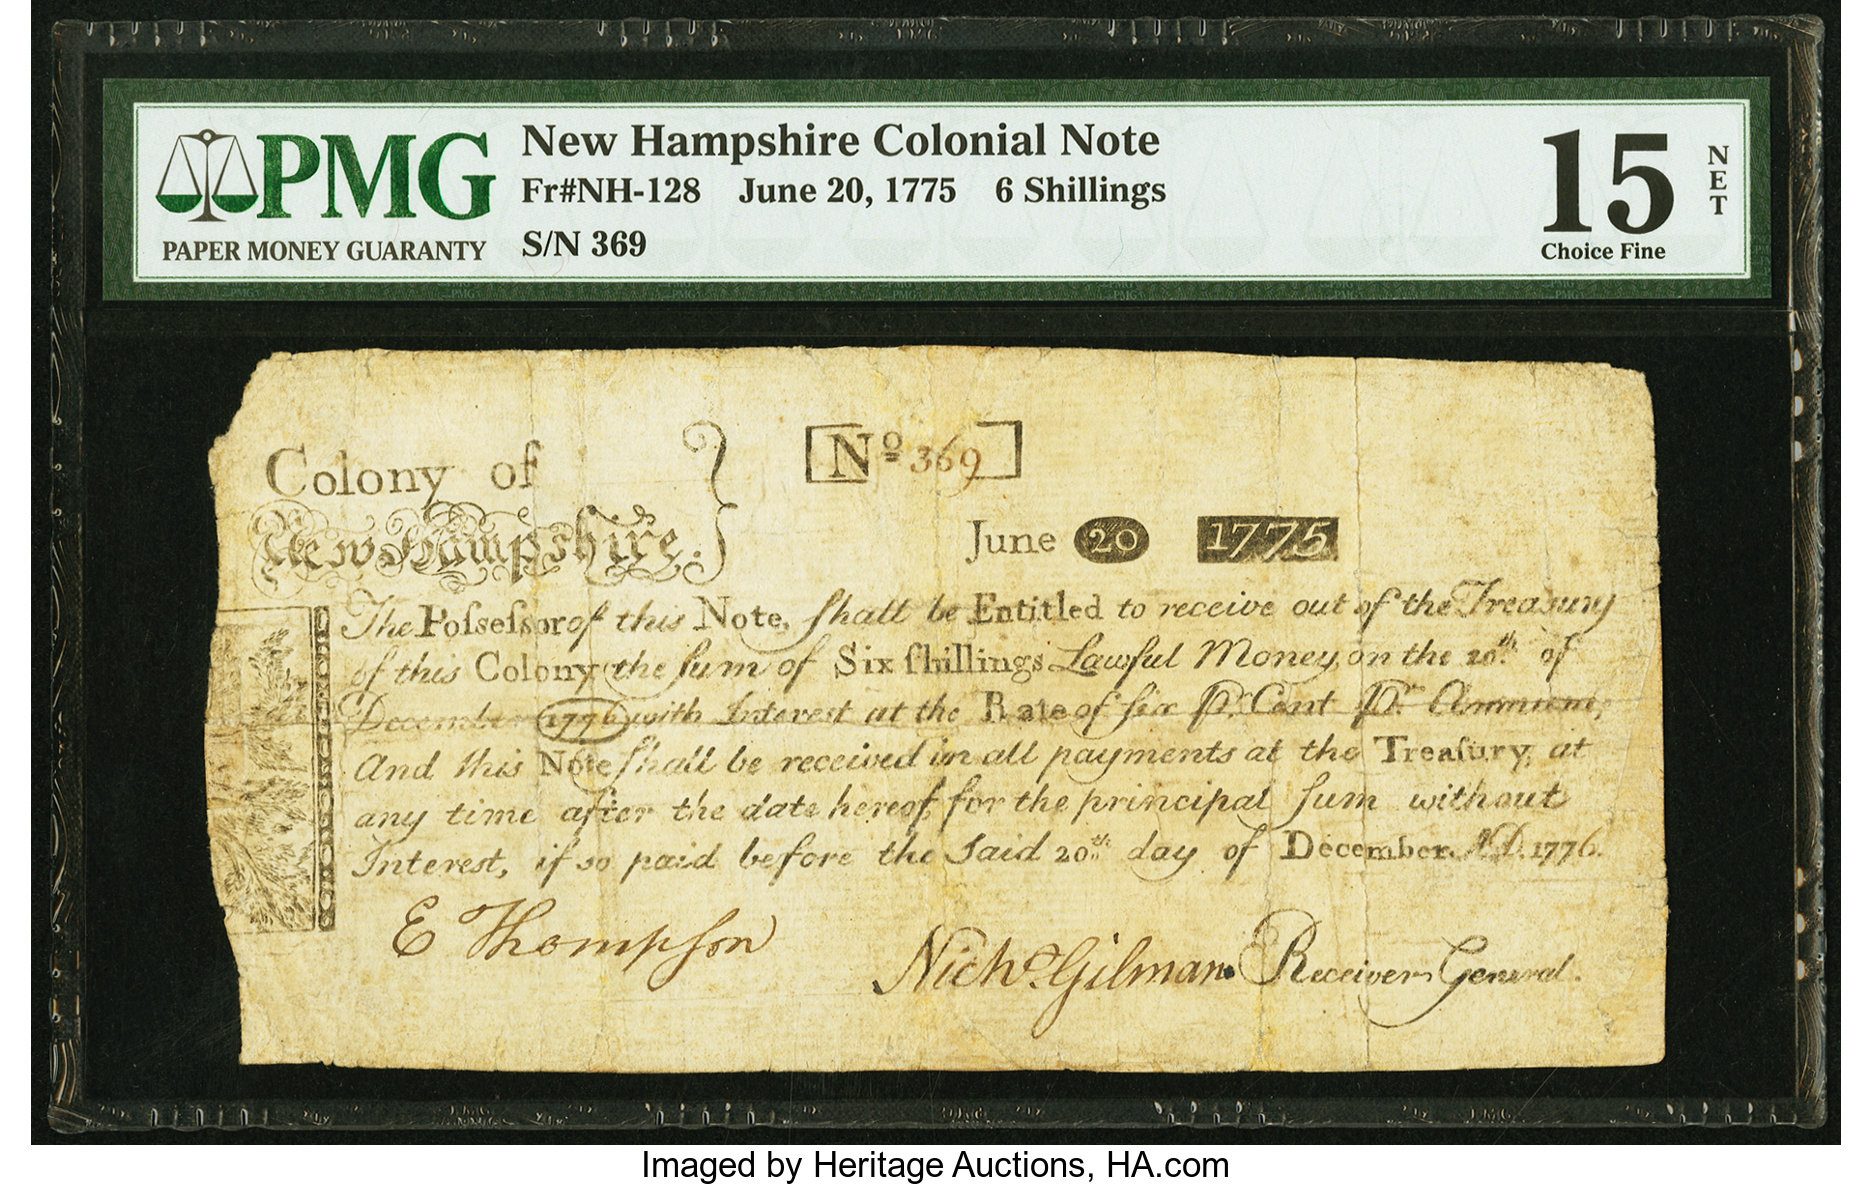 PMG
PAPER MONEY GUARANTY
New Hampshire Colonial Note
Fr#NH-128 June 20, 1775 6 Shillings
S/N 369
15
NET
Choice Fine
Colony of
New Hampshire.
No 369
June 20 1775
The Poſseſsor of this Note, ſhall be Entitled to receive out of the Treasury
of this Colony the ſum of Six ſhillings Lawful Money, on the 20th. of
December 1776 with Interest at the Rate of ſix Pr. Cent Pr. Annum;
And this Note ſhall be received in all payments at the Treaſury, at
any time after the date hereof, for the principal ſum without
Interest, if so paid before the Said 20th. day of December. A.D. 1776.
E Thompſon
Nichs. Gilman Receiver General.
Imaged by Heritage Auctions, HA.com